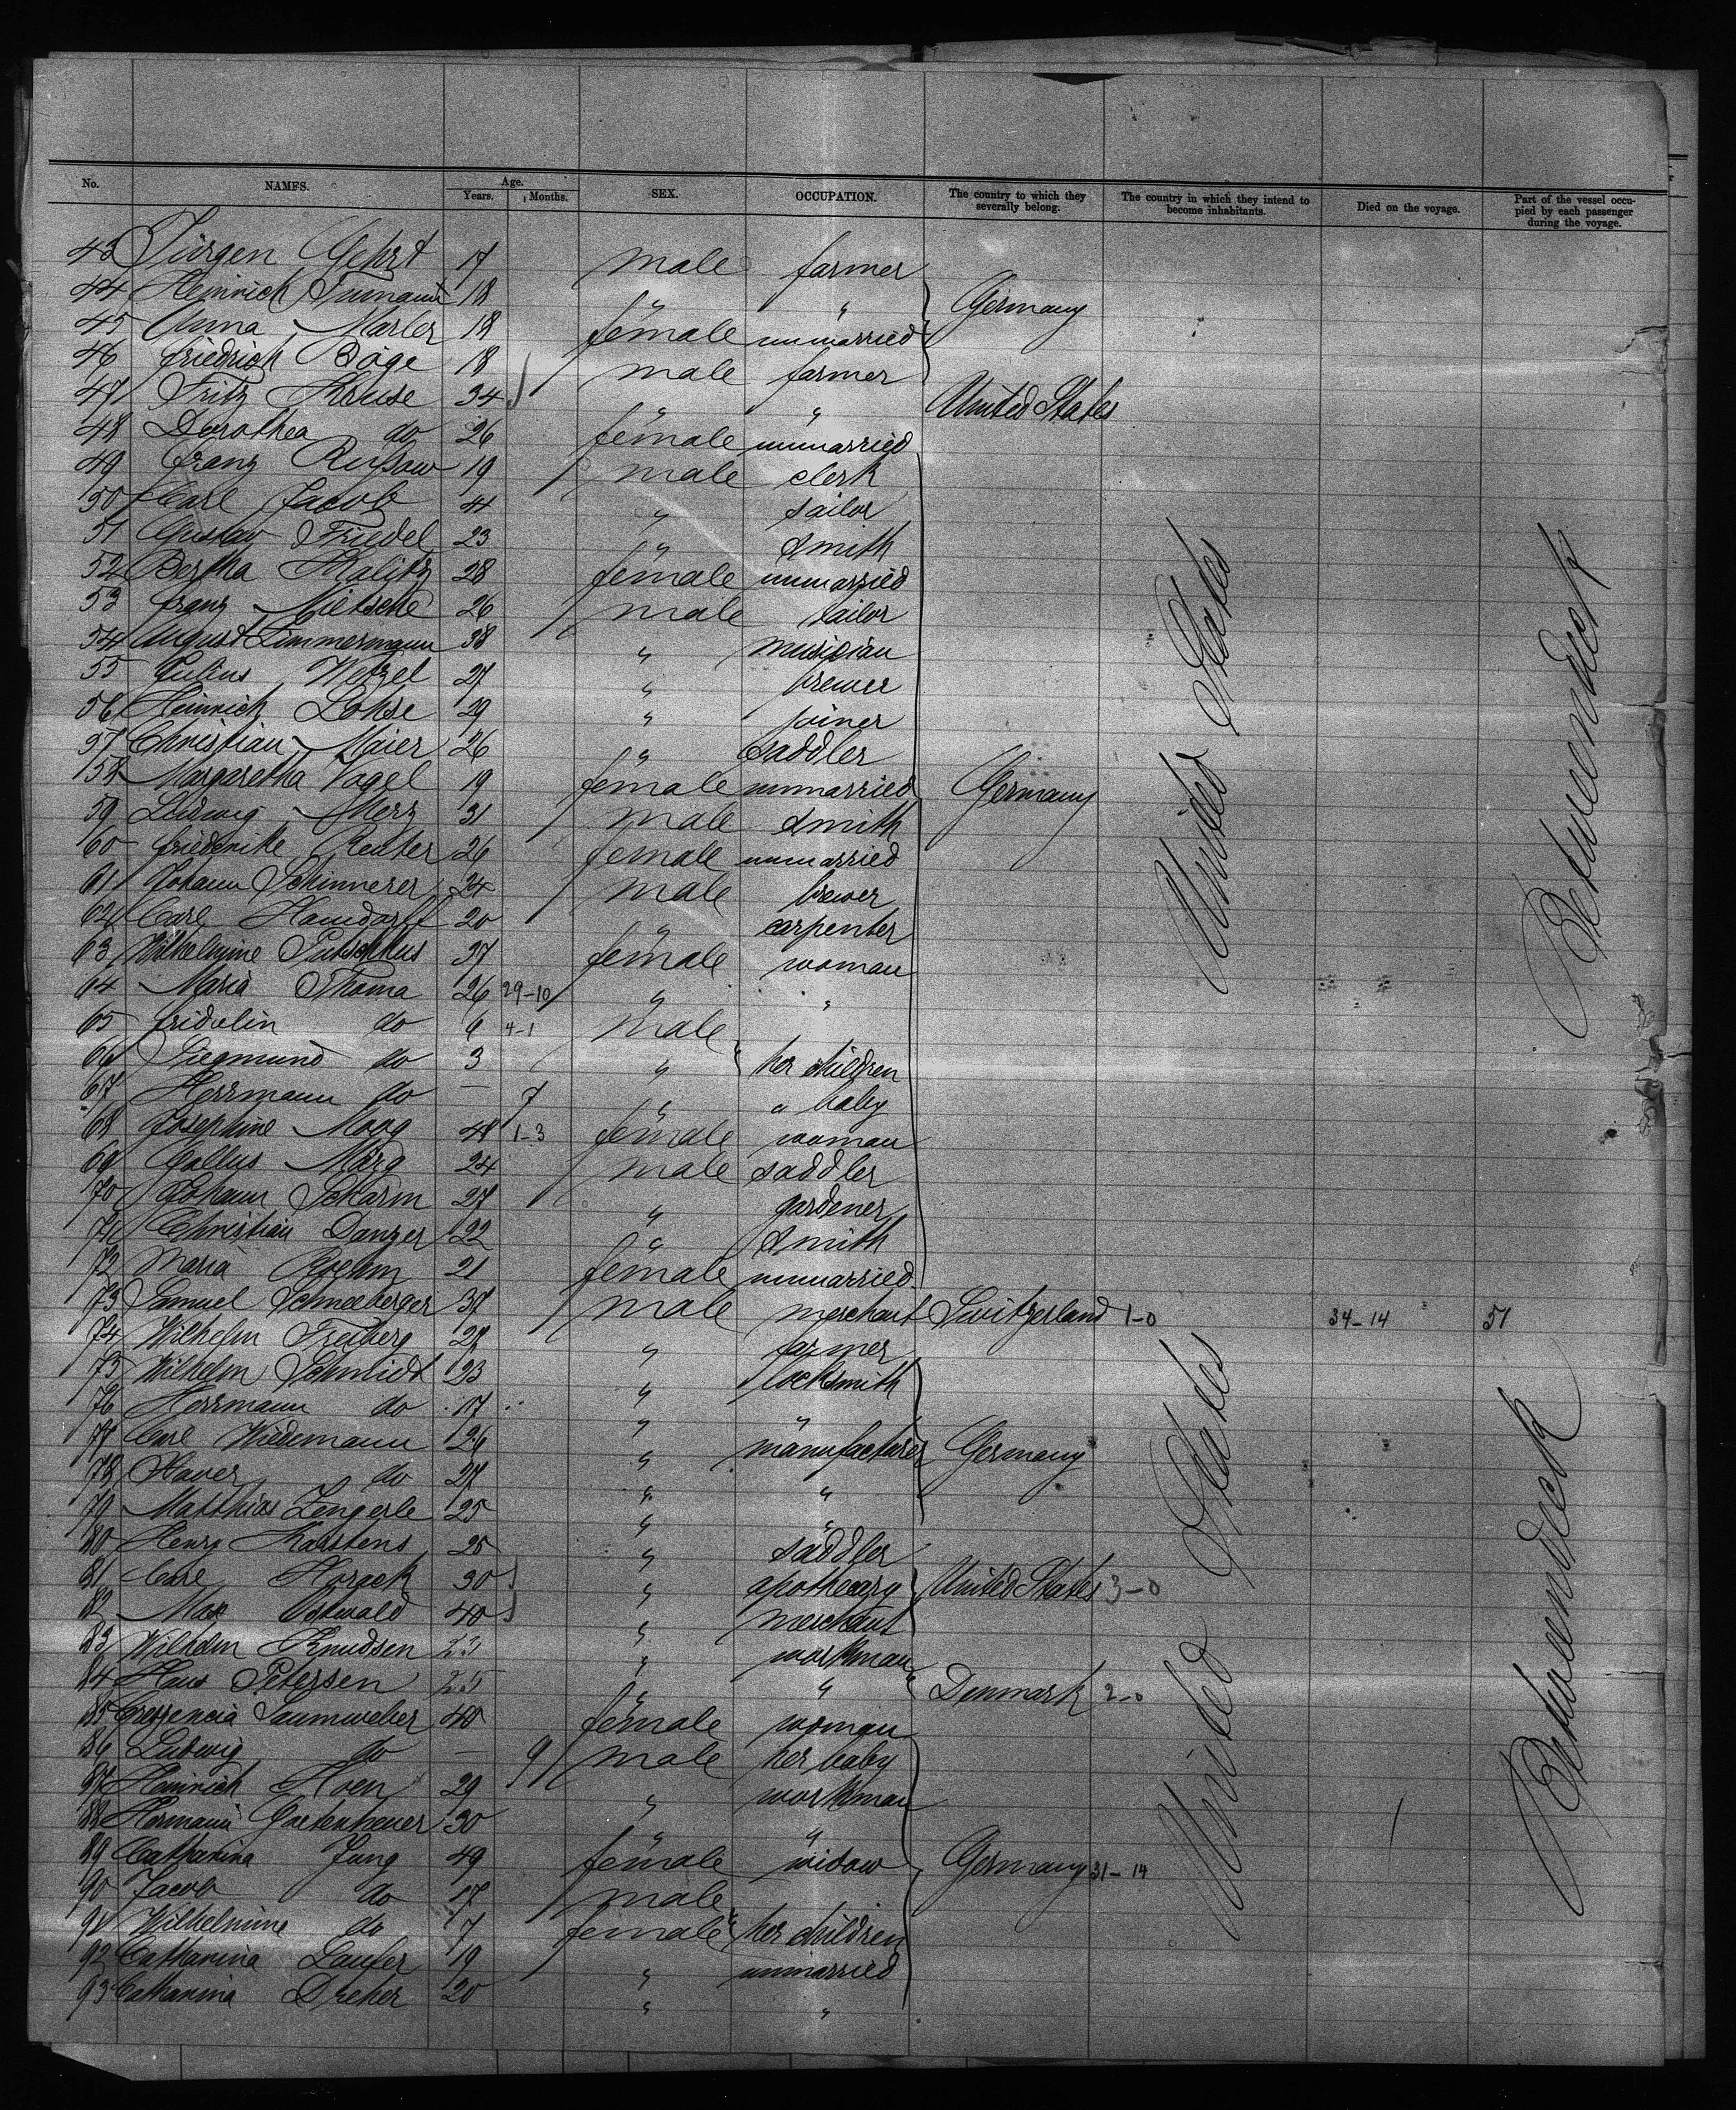 No. NAMES. Age. Years. Months. SEX. OCCUPATION. The country to which they severally belong. The country in which they intend to become inhabitants. Died on the voyage. Part of the vessel occupied by each passenger during the voyage.
43 Jürgen Gehrt 17 male farmer
44 Heinrich 18 " " Germany
45 Anna Marler 18 female unmarried
46 Friedrich Böge 18 male farmer
47 Fritz Kruse 34 " " United States
48 Dorothea do 26 female unmarried
49 Franz 19 male clerk
50 Carl Jacob sailor
51 Gustav Friedel 23 " smith
52 Bertha Kalitz 28 female unmarried
53 Franz Nietsche 26 male tailor
54 August Zimmermann 38 " musician
55 Julius Wetzel 27 " brewer
56 Heinrich Lohse 29 " joiner
57 Christian Maier 26 " saddler
58 Margaretha Vogel 19 female unmarried Germany
59 Ludwig Merz 31 male smith
60 Friederike Reuter 26 female unmarried
61 Johann Schinnerer 24 male brewer
62 Carl Hamdorff 20 " carpenter
63 Wilhelmine 37 female woman
64 Maria Thoma 26 29-10 " "
65 Fridolin do 6 4-1 male
66 Siegmund do 3 " her children
67 Herrmann do — 7 " " baby
68 Josephine Moog 1-3 female woman
69 Gallus März 24 male saddler
70 Johann Scharm 27 " gardener
71 Christian Danzer 22 " smith
72 Maria Roehm 21 female unmarried
73 Samuel Schneeberger 37 male merchant Switzerland 1-0 34-14 51
74 Wilhelm Freiberg " farmer
75 Wilhelm Schmidt 23 " locksmith
76 Herrmann do 17 " "
77 Carl Wiedemann 26 " manufacturer Germany
78 Xaver do 27 " "
79 Matthias Zengerle 25 " "
80 Henry Karstens 25 " saddler
81 Carl Horack 30 " apothecary United States 3-0
82 Max Ostwald 40 " merchant
83 Wilhelm Knudsen 23 " workman
84 Hans Petersen 25 " " Denmark 2-0
85 Crescencia Saumweber 40 female woman
86 Ludwig do — 9 male her baby
87 Heinrich Hoen 29 " workman
88 Hermann 30 " "
89 Catharina Jung 49 female widow Germany 31-14
90 Jacob do 17 male
91 Wilhelmine do 7 female her children
92 Catharina Laufer 19 " unmarried
93 Catharina Dreher 20 " "
United States
Betweendeck
United States
Betweendeck